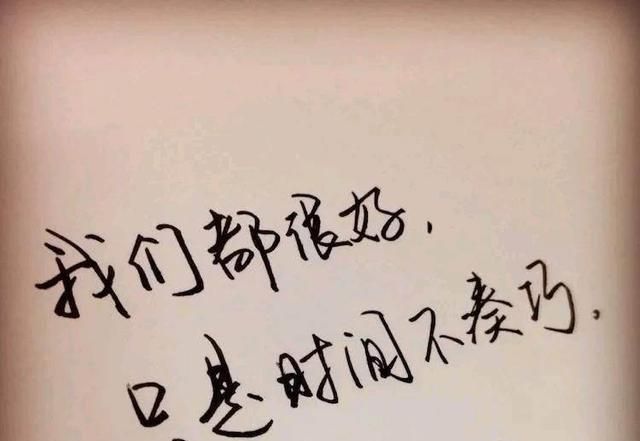 我们都很好.
只是时间不凑巧.